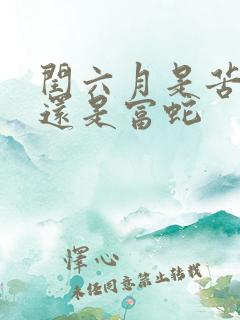 閏六月是苦蛇
還是富蛇
懌心
未任同意禁止转载